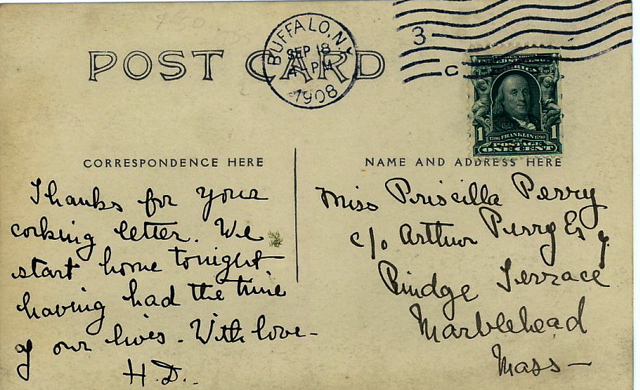 POST CARD
BUFFALO, N.Y.
SEP 18
PM
1908
3
C
1 1
FRANKLIN
POSTAGE
ONE CENT
CORRESPONDENCE HERE
Thanks for your
corking letter. We
start home tonight
having had the time
of our lives. With love-
H.D.
NAME AND ADDRESS HERE
Miss Priscilla Perry
c/o Arthur Perry Esq
Rindge Terrace
Marblehead
Mass-